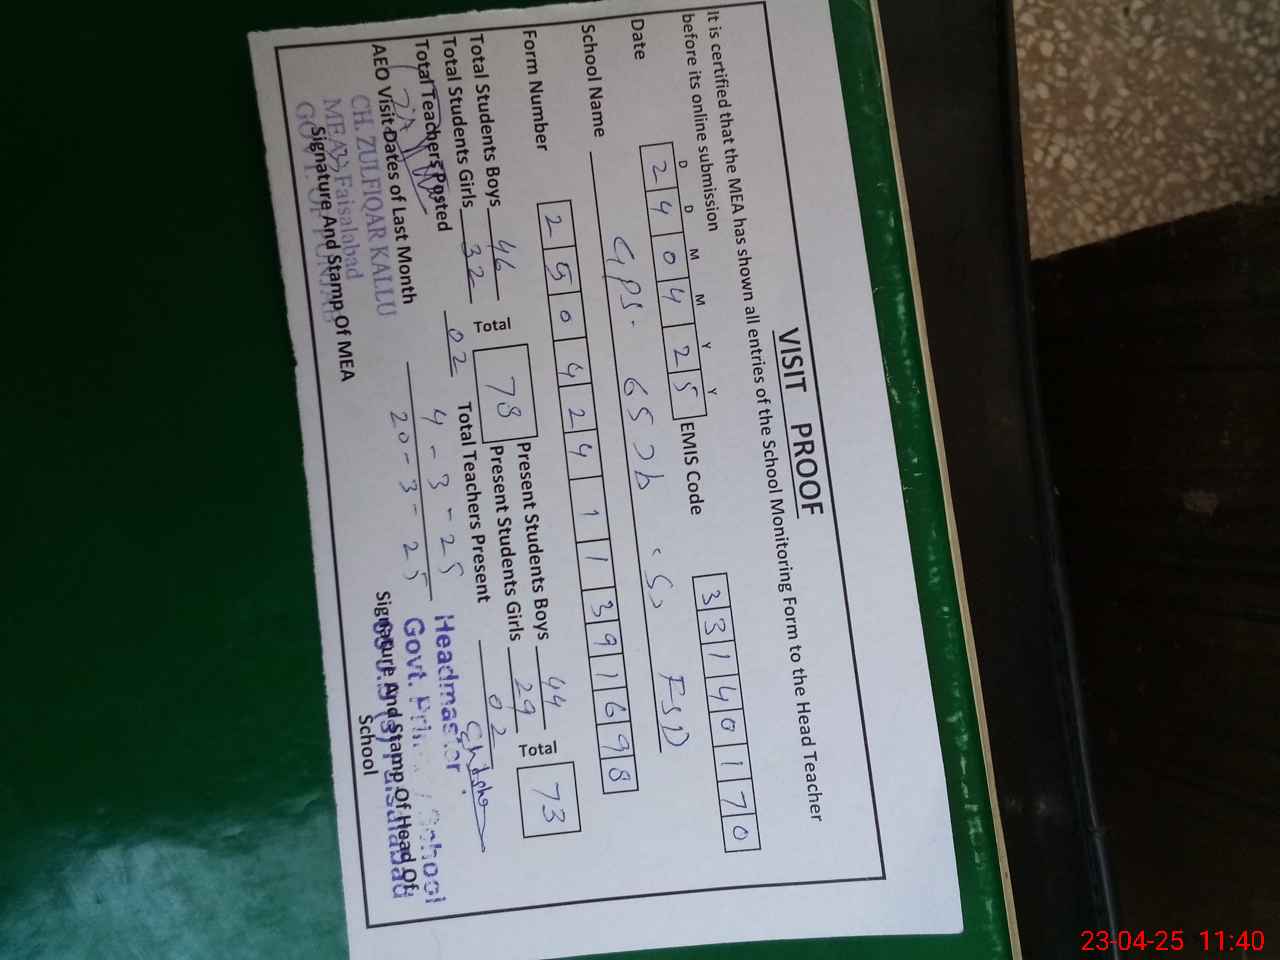 VISIT PROOF
It is certified that the MEA has shown all entries of the School Monitoring Form to the Head Teacher
before its online submission
D D M M Y Y
Date 2 4 0 4 2 5 EMIS Code 3 3 1 4 0 1 7 0
School Name GPS. 65 FSD
Form Number 2 5 0 4 2 4 1 1 3 9 1 6 9 8
Total Students Boys 46 Total 78 Present Students Boys 44 Total 73
Total Students Girls 32 Present Students Girls 29
Total Teachers Posted 02 Total Teachers Present 02
AEO Visit Dates of Last Month 4-3-25
20-3-25
CH. ZULFIQAR KALLU
MEA Faisalabad
GOVT. OF PUNJAB
Signature And Stamp Of MEA
Headmaster
Govt. School
Signature And Stamp Of Head Of
School
23-04-25 11:40